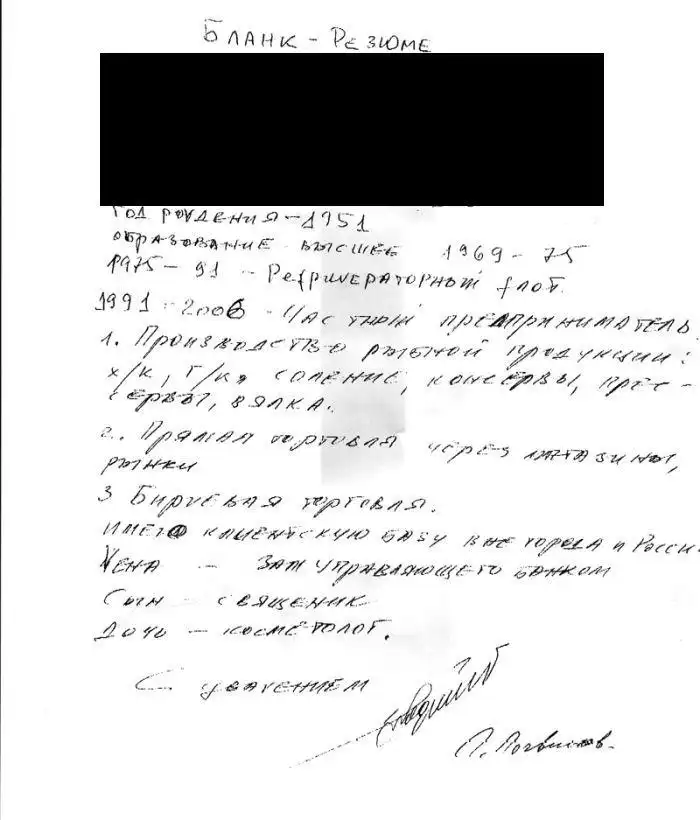 Бланк - Резюме
год рождения - 1951
образование высшее 1969 - 75
1975 - 91 - Рефрижераторный флот.
1991 - 2006 - Частный предприниматель
1. Производство рыбной продукции:
х/к, г/к, соление, консервы, пре-
сервы, вялка.
2. Прямая торговля через магазины,
рынки
3 Биржевая торговля.
имею клиентскую базу вне города и Росси
Жена - зам управляющего банком
Сын - священик
Дочь - косметолог.
С уважением